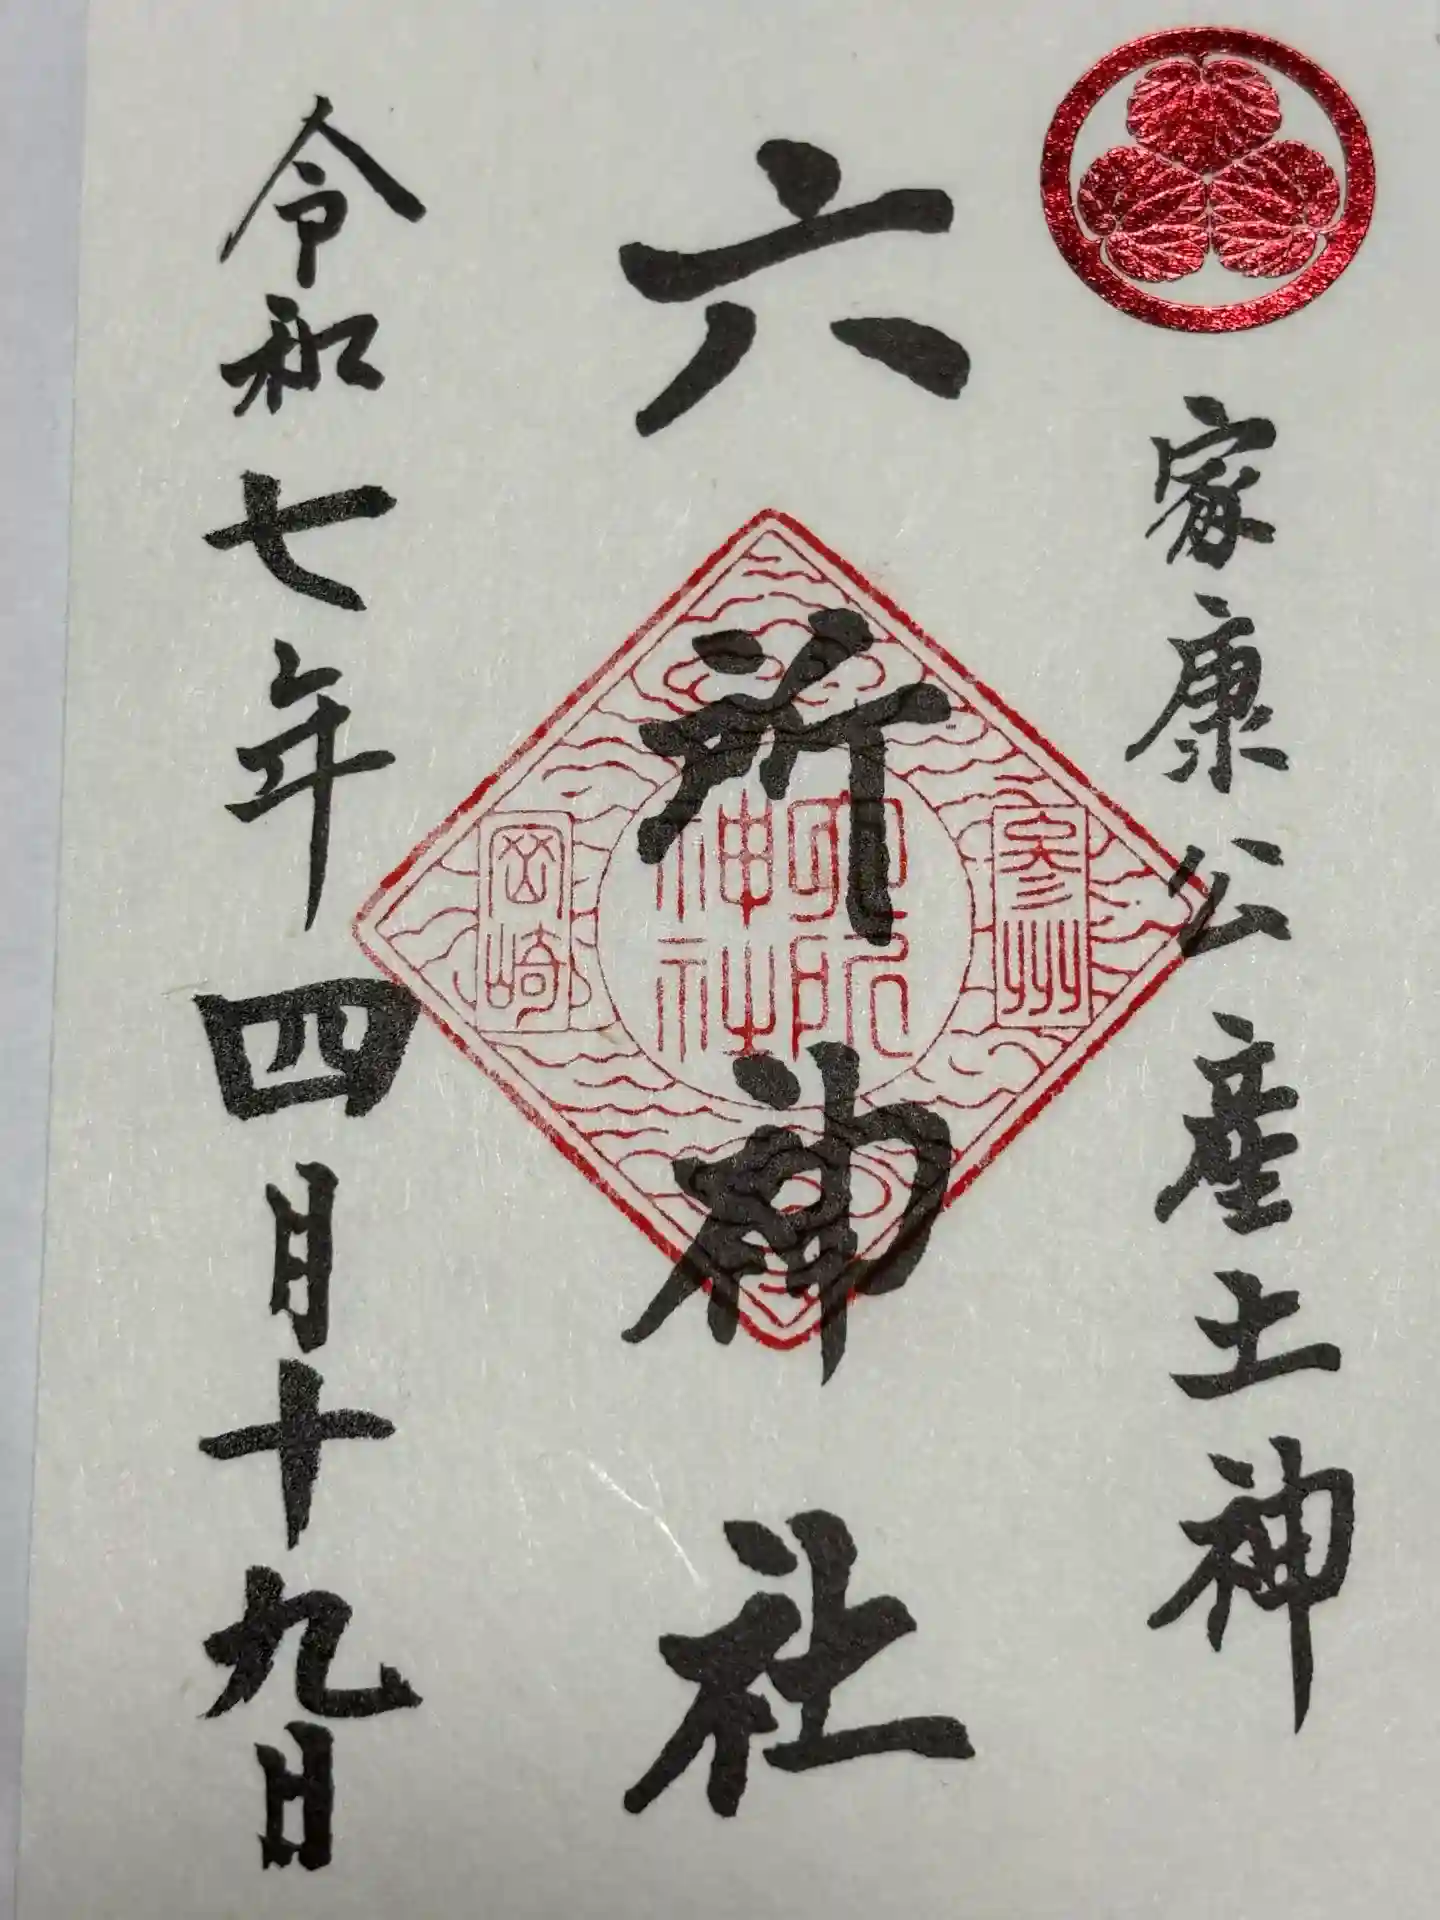 家康公産土神
六所神社
參州
六所神社
岡崎
令和七年四月十九日